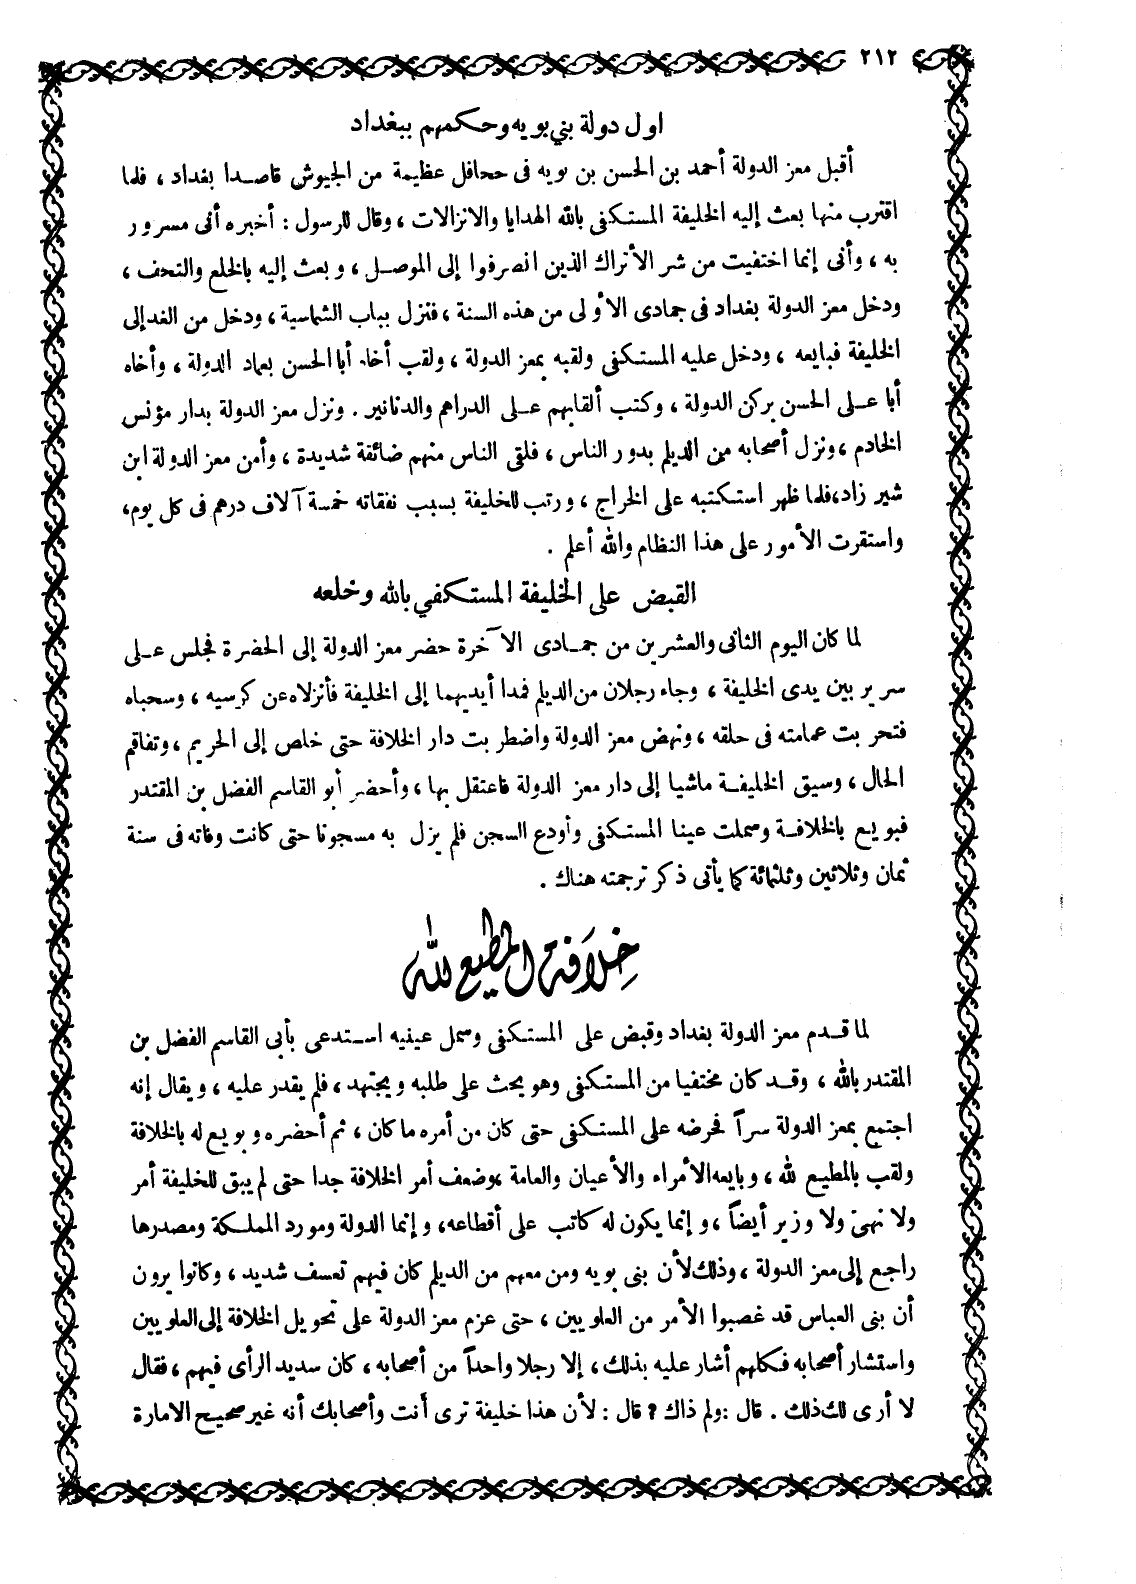 ٢١٢
اول دولة بني بويه وحكمهم ببغداد
أقبل معز الدولة أحمد بن الحسن بن بويه فى جحافل عظيمة من الجيوش قاصدا بغداد ، فلما
اقترب منها بعث إليه الخليفة المستكفى بالله الهدايا والانزالات ، وقال للرسول : أخبره أنى مسرور
به ، وأنى إنما اختفيت من شر الأتراك الذين انصرفوا إلى الموصل ، وبعث إليه بالخلع والتحف ،
ودخل معز الدولة بغداد فى جمادى الأولى من هذه السنة ، فنزل بباب الشماسية ، ودخل من الغد إلى
الخليفة فبايعه ، ودخل عليه المستكفى ولقبه بمعز الدولة ، ولقب أخاه أبا الحسن بعماد الدولة ، وأخاه
أبا على الحسن بركن الدولة ، وكتب ألقابهم على الدراهم والدنانير . ونزل معز الدولة بدار مؤنس
الخادم ، ونزل أصحابه من الديلم بدور الناس ، فلقى الناس منهم ضائقة شديدة ، وأمن معز الدولة ابن
شير زاد، فلما ظهر استكتبه على الخراج ، ورتب للخليفة بسبب نفقاته خمسة آلاف درهم فى كل يوم،
واستقرت الأمور على هذا النظام والله أعلم .
القبض على الخليفة المستكفي بالله وخلعه
لما كان اليوم الثانى والعشرين من جمادى الآخرة حضر معز الدولة إلى الحضرة فجلس على
سرير بين يدى الخليفة ، وجاء رجلان من الديلم فمدا أيديهما إلى الخليفة فأنزلاه عن كرسيه ، وسحباه
فتحربت عمامته فى حلقه ، ونهض معز الدولة واضطربت دار الخلافة حتى خلص إلى الحريم ، وتفاقم
الحال ، وسيق الخليفة ماشيا إلى دار معز الدولة فاعتقل بها ، وأحضر أبو القاسم الفضل بن المقتدر
فبويع بالخلافة وسملت عينا المستكفى وأودع السجن فلم يزل به مسجونا حتى كانت وفاته فى سنة
ثمان وثلاثين وثلثمائة كما يأتى ذكر ترجمته هناك .
خِلَافة المطيع لله
لما قدم معز الدولة بغداد وقبض على المستكفى وسمل عينيه استدعى بأبى القاسم الفضل بن
المقتدر بالله ، وقد كان مختفيا من المستكفى وهو يحث على طلبه ويجتهد ، فلم يقدر عليه ، ويقال إنه
اجتمع بمعز الدولة سراً فحرضه على المستكفى حتى كان من أمره ما كان ، ثم أحضره وبويع له بالخلافة
ولقب بالمطيع لله ، وبايعه الأمراء والأعيان والعامة ، وضعف أمر الخلافة جدا حتى لم يبق للخليفة أمر
ولا نهى ولا وزير أيضاً ، وإنما يكون له كاتب على أقطاعه، وإنما الدولة ومورد المملكة ومصدرها
راجع إلى معز الدولة ، وذلك لأن بنى بويه ومن معهم من الديلم كان فيهم تعسف شديد ، وكانوا يرون
أن بنى العباس قد غصبوا الأمر من العلويين ، حتى عزم معز الدولة على تحويل الخلافة إلى العلويين
واستشار أصحابه فكلهم أشار عليه بذلك ، إلا رجلا واحداً من أصحابه ، كان سديد الرأى فيهم ، فقال
لا أرى لك ذلك . قال : ولم ذاك ؟ قال : لأن هذا خليفة ترى أنت وأصحابك أنه غير صحيح الامارة